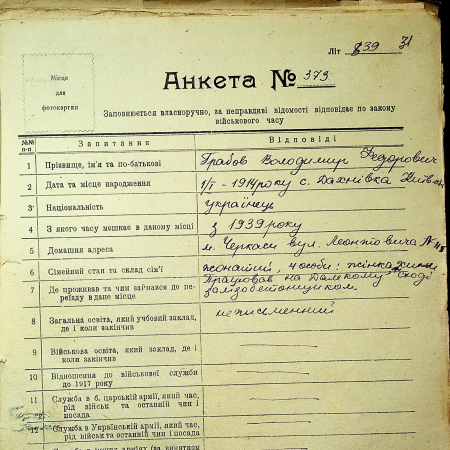 Літ 839 31
Місце
для
фотокартки
Анкета № 373
Заповнюється власноручно, за неправдиві відомості відповідає по закону
військового часу
№№ п-п. Запитання Відповіді
1 Прізвище, ім'я та по-батькові Грабов Володимир Федорович
2 Дата та місце народження 1/I - 1914 року с. Дахнівка Київськ
3 Національність українець
4 З якого часу мешкає в даному місці з 1939 року
5 Домашня адреса м. Черкаси вул. Леонтовича №
6 Сімейний стан та склад сім'ї жонатий, 4 особи: жінка
7 Де проживав та чим займався до переїзду в дане місце Працював на Далекому Сході
залізобетонщиком
8 Загальна освіта, який учбовий заклад, де і коли закінчив неписменний
9 Військова освіта, який заклад, де і коли закінчив
10 Відношення до військової служби до 1917 року
11 Служба в б. царській армії, який час, рід військ та останній чин і посада
12 Служба в Українській армії, який час, рід військ та останній чин і посада